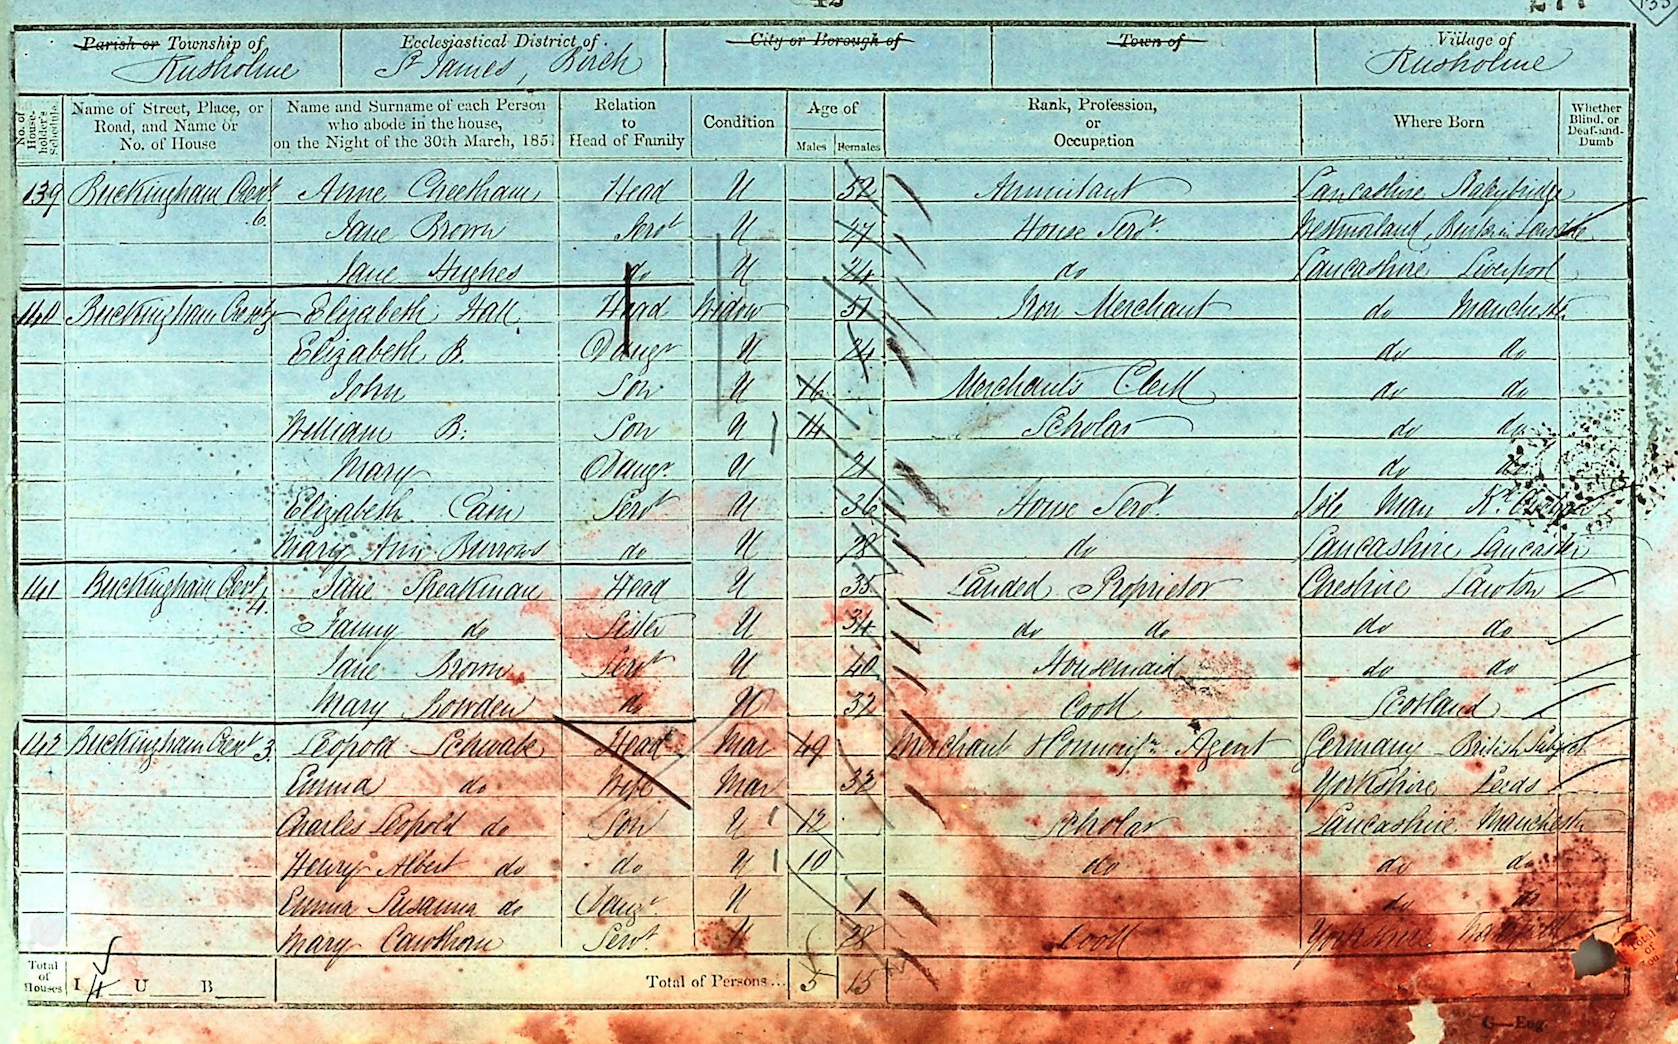 42
Parish or Township of Ecclesiastical District of City or Borough of Town of Village of
Rusholme St James, Birch Rusholme
No. of House-holder's Schedule Name of Street, Place, or Road, and Name or No. of House Name and Surname of each Person who abode in the house, on the Night of the 30th March, 1851 Relation to Head of Family Condition Age of Males Females Rank, Profession, or Occupation Where Born Whether Blind, or Deaf-and-Dumb
139 Buckingham Crest 6 Anne Cheetham Head U 52 Annuitant Lancashire Stalybridge
Jane Brown Servt U 27 House Servt. Westmorland,
Jane Hughes do U 24 do Lancashire Liverpool
140 Buckingham Cresct Elizabeth Hall Head Widow 51 Iron Merchant do Manchester
Elizabeth B. Daugr U 24 do do
John Son U 16 Merchants Clerk do do
William B. Son U 14 Scholar do do
Mary Daugr. U 21 do do
Elizabeth Cain Servt U 36 House Servt. Isle Man
Mary Ann Burrows do U 28 do Lancashire Lancaster
141 Buckingham Cresct 4. Jane Speakman Head U 35 Landed Proprietor Cheshire Lawton
Fanny do Sister U 34 do do do do
Jane Brown Servt U 40 Housemaid do do
Mary Bowden do U 32 Cook Scotland
142 Buckingham Cresct 3. Leopold Schwabe Head Mar 49 Merchant Agent Germany British Subject
Emma do Wife Mar 32 Yorkshire Leeds
Charles Leopold do Son U 12 Scholar Lancashire Manchester
Henry Albert do do U 10 do do do
Emma Susanna do Daugr. U 1 do do
Mary Cawthan Servt. U 28 Cook Yorkshire
Total of Houses I 4 U B Total of Persons... 5 15
G—Eng.